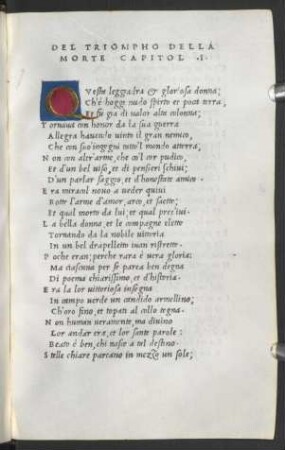 DEL TRIOMPHO DELLA
MORTE CAPITOL .I.
Q Vesta leggiadra et gloriosa donna;
Ch'è hoggi nudo spirto et poca terra,
Et fu gia di valor alta colonna;
T ornava con honor da la sua guerra
Allegra havendo vinto il gran nemico,
Che con suo' ingegni tutto'l mondo atterra,
N on con altr'arme, che col cor pudico,
Et d'un bel viso, et di pensieri schivi;
D'un parlar saggio, et d'honestate amico.
E ra miracol novo a veder quivi
Rotte l'arme d'amor, arco, et saette;
Et qual morto da lui, et qual pres'ivi.
L a bella donna, et le compagne elette
Tornando da la nobile vittoria
In un bel drapelletto ivan ristrette.
P oche eran; perche rara è vera gloria:
Ma ciascuna per se parea ben degna
Di poema chiarissimo, et d'historia.
E ra la lor vittoriosa insegna
In campo verde un candido armellino;
Ch'oro fino, et topati al collo tegna.
N on human veramente, ma divino
Lor andar era, et lor sante parole:
Beato è ben, chi nasce a tal destino.
S telle chiare pareano in mezzo un sole;